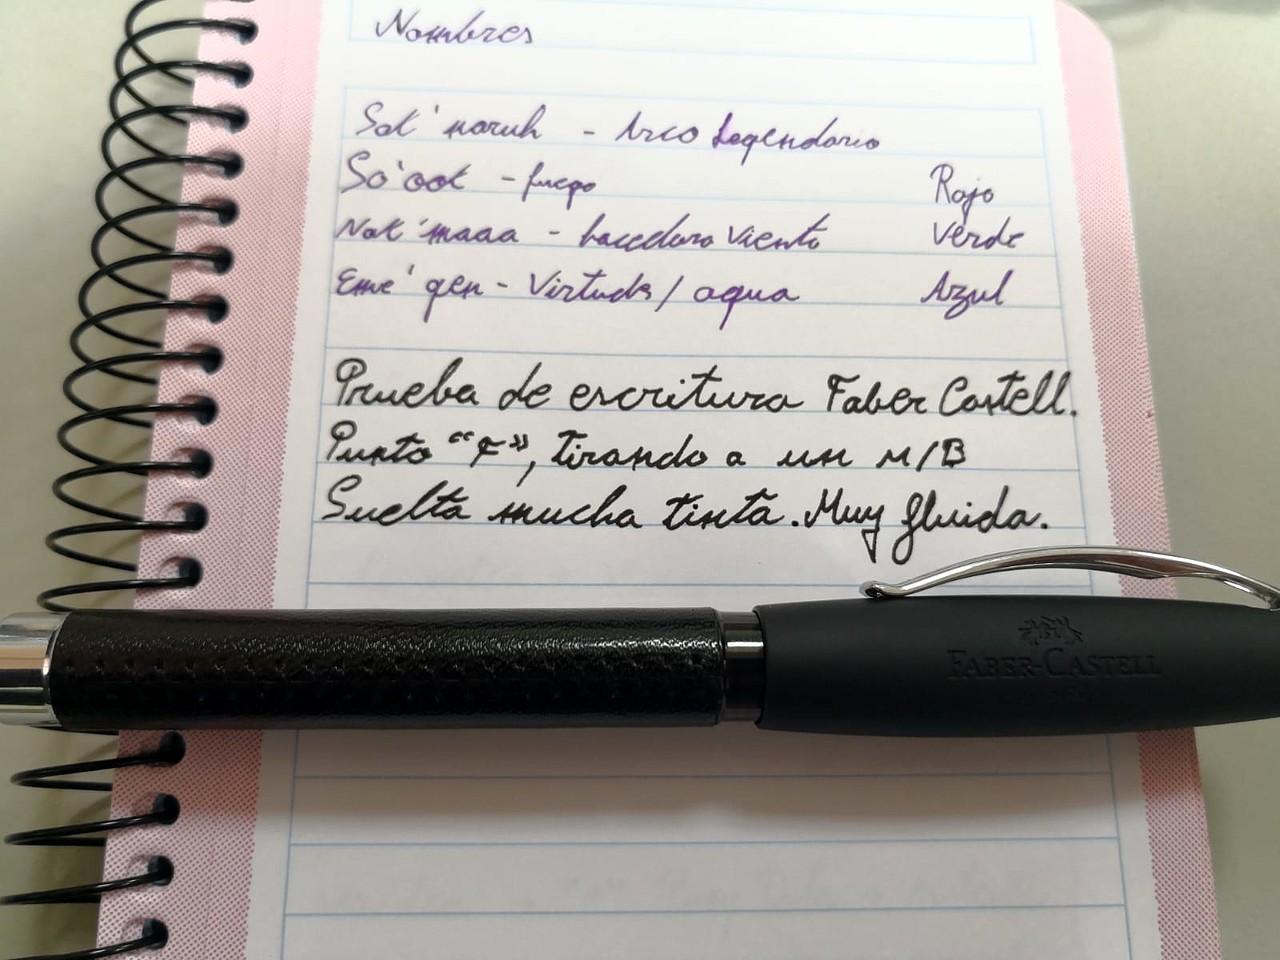 Nombres
Sat'naruh - Arco Legendario
So'oot - fuego Rojo
Nat'maaa - hacedora Viento Verde
Eme'gen - Virtudes / agua Azul
Prueba de escritura Faber Castell.
Punto "F", tirando a un M/B
Suelta mucha tinta. Muy fluida.
FABER-CASTELL